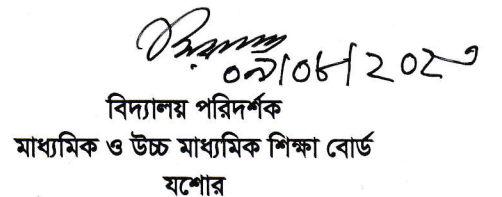 ০৯/০৮/২০২৩
বিদ্যালয় পরিদর্শক
মাধ্যমিক ও উচ্চ মাধ্যমিক শিক্ষা বোর্ড
যশোর